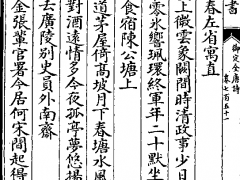 書
御定全唐詩
卷七百五十一
春左省寓直
上微雲象闕間時清政事少日
雲氷響珮環終軍年二十默坐
食宿陳公塘上
道茅屋倚高坡月下春塘水風
對酒遠情多今夜孤亭夢悠揚
去廣陵別史員外南齋
金張輩官署今居何宋間起得